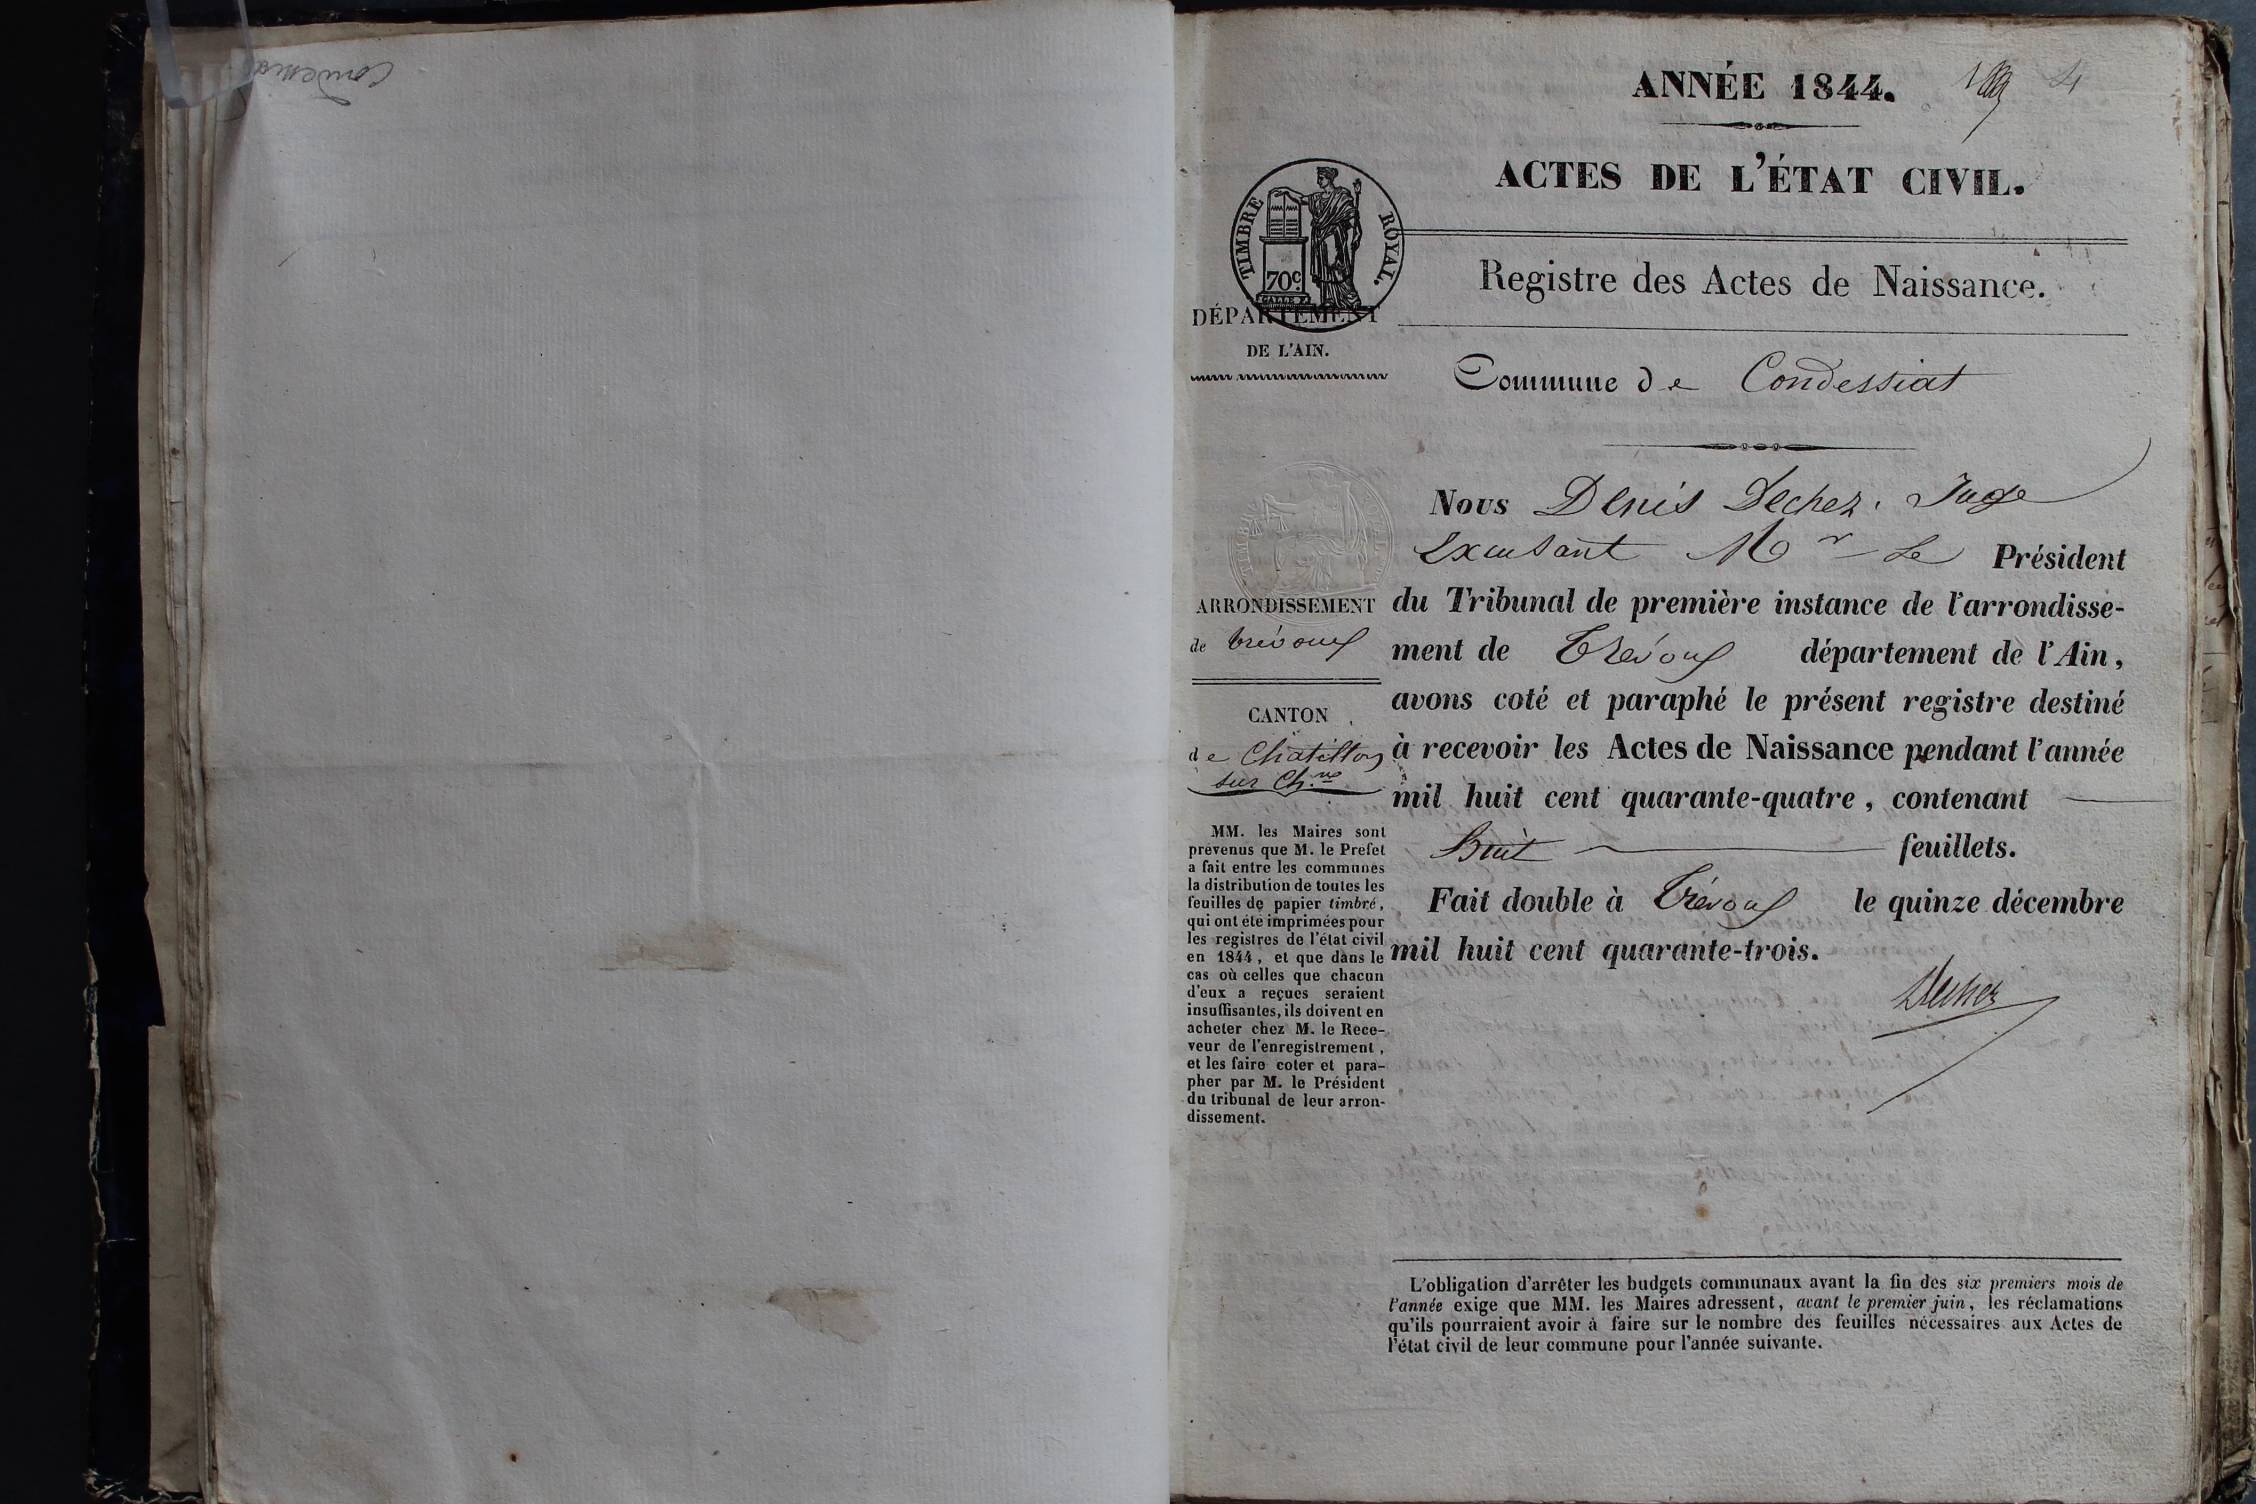 Condessiat
ANNÉE 1844.
4
ACTES DE L'ÉTAT CIVIL.
TIMBRE ROYAL.
70c.
Registre des Actes de Naissance.
DÉPARTEMENT
DE L'AIN.
Commune de Condessiat
Nous Denis Dechez, Juge
Excusant Mr Le Président
du Tribunal de première instance de l'arrondisse-
ment de Trévoux département de l'Ain,
avons coté et paraphé le présent registre destiné
à recevoir les Actes de Naissance pendant l'année
mil huit cent quarante-quatre, contenant
huit feuillets.
Fait double à Trévoux le quinze décembre
mil huit cent quarante-trois.
Dechez
ARRONDISSEMENT
de Trévoux
CANTON
de Chatillon
sur Ch.ne
MM. les Maires sont
prévenus que M. le Prefet
a fait entre les communes
la distribution de toutes les
feuilles de papier timbré,
qui ont été imprimées pour
les registres de l'état civil
en 1844, et que dans le
cas où celles que chacun
d'eux a reçues seraient
insuffisantes, ils doivent en
acheter chez M. le Rece-
veur de l'enregistrement,
et les faire coter et para-
pher par M. le Président
du tribunal de leur arron-
dissement.
L'obligation d'arrêter les budgets communaux avant la fin des six premiers mois de
l'année exige que MM. les Maires adressent, avant le premier juin, les réclamations
qu'ils pourraient avoir à faire sur le nombre des feuilles nécessaires aux Actes de
l'état civil de leur commune pour l'année suivante.